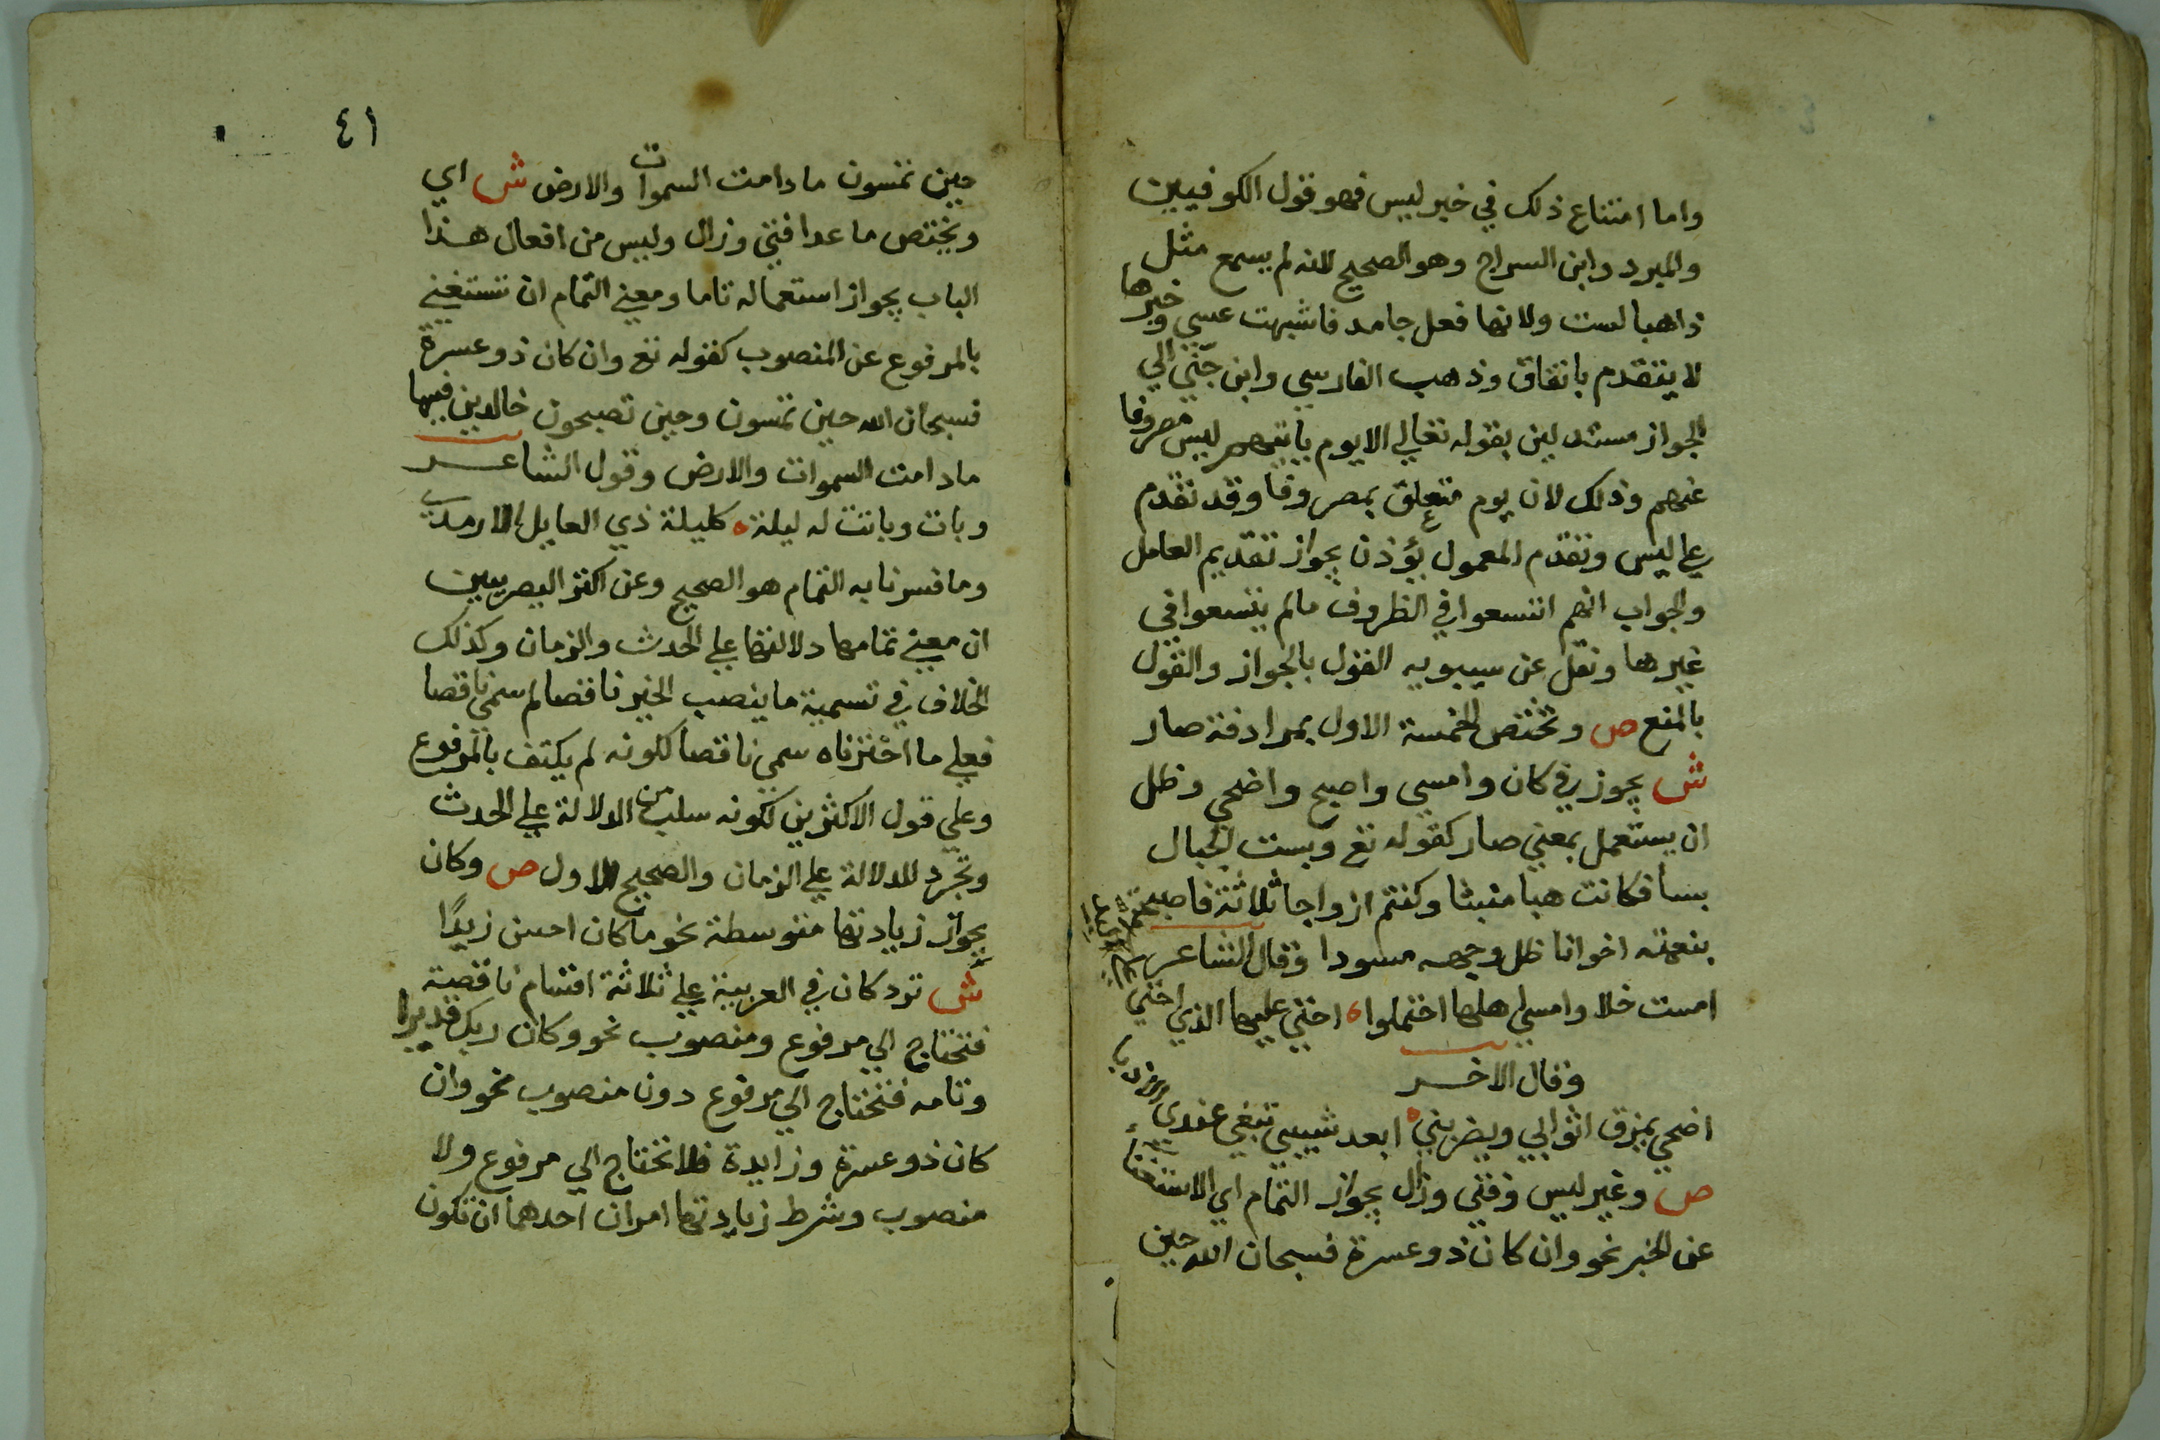 واما امتناع ذلك في خبر ليس فهو قول الكوفيين
والمبرد وابن السراج وهو الصحيح لانه لم يسمع مثل
ذاهبا لست ولانها فعل جامد فاشبهت عسي وخبرها
لا يتقدم باتفاق وذهب الفارسي وابن جني الي
الجواز مستدلين بقوله تعالي الا يوم ياتيهم ليس مصروفا
عنهم وذلك لان يوم متعلق بمصروفا وقد تقدم
علي ليس وتقدم المعمول يؤذن بجواز تقديم العامل
والجواب انهم اتسعوا في الظروف مالم يتسعوا في
غيرها ونقل عن سيبويه القول بالجواز والقول
بالمنع ص وتختص الخمسة الاول بمرادفة صار
ش يجوز في كان وامسي واصبح واضحي وظل
ان يستعمل بمعني صار كقوله تع وبست الجبال
بسا فكانت هبا منبثا وكنتم ازواجا ثلاثة فاصبحتم
بنعمته اخوانا ظل وجهه مسودا وقال الشاعر
امست خلا وامسي اهلها احتملوا ه اخني عليها الذي اخني
وقال الاخر
اضحي يمزق اثوابي ويضربني ه ابعد شيبي تبغي عندي
ص وغير ليس وفتي وزال بجواز التمام اي الاستغناء
عن الخبر نحو وان كان ذو عسرة فسبحان الله حين
٤١
حين تمسون مادامت السموات والارض ش اي
ويختص ما عدا فتي وزال وليس من افعال هذا
الباب بجواز استعماله تاما ومعني التمام ان تستغني
بالمرفوع عن المنصوب كقوله تع وان كان ذو عسرة
فسبحان الله حين تمسون وحين تصبحون خالدين فيها
مادامت السموات والارض وقول الشاعر
وبات وباتت له ليلة ه كليلة ذي العاير الارمد
وما فسرنا به التمام هو الصحيح وعن اكثر البصريين
ان معني تمامها دلالتها علي الحدث والزمان وكذلك
الخلاف في تسمية ما ينصب الخبر ناقصا لم سمي ناقصا
فعلي ما اخترناه سمي ناقصا لكونه لم يكتف بالمرفوع
وعلي قول الاكثرين لكونه سلب من الدلالة علي الحدث
وتجرد للدلالة علي الزمان والصحيح الاول ص وكان
بجواز زيادتها متوسطة نحو ما كان احسن زيدًا
ش ترد كان في العربية علي ثلاثة اقسام ناقصة
فتحتاج الي مرفوع ومنصوب نحو وكان ربك قديرا
وتامه فتحتاج الي مرفوع دون منصوب نحو وان
كان ذو عسرة وزايدة فلا تحتاج الي مرفوع ولا
منصوب وشرط زيادتها امران احدهما ان تكون